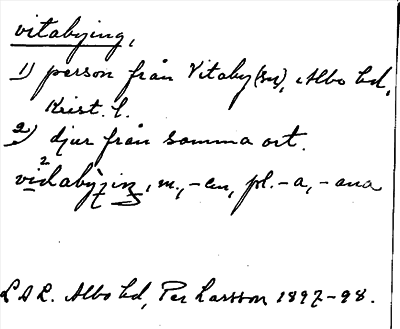 vitabying,
1) person från Vitaby (sn), Albo hd,
Krist. l.
2) djur från samma ort.
vidabyʹzinz, m., -en, pl. -a, -ana
L A L. Albo hd, Per Larsson 1897-98.